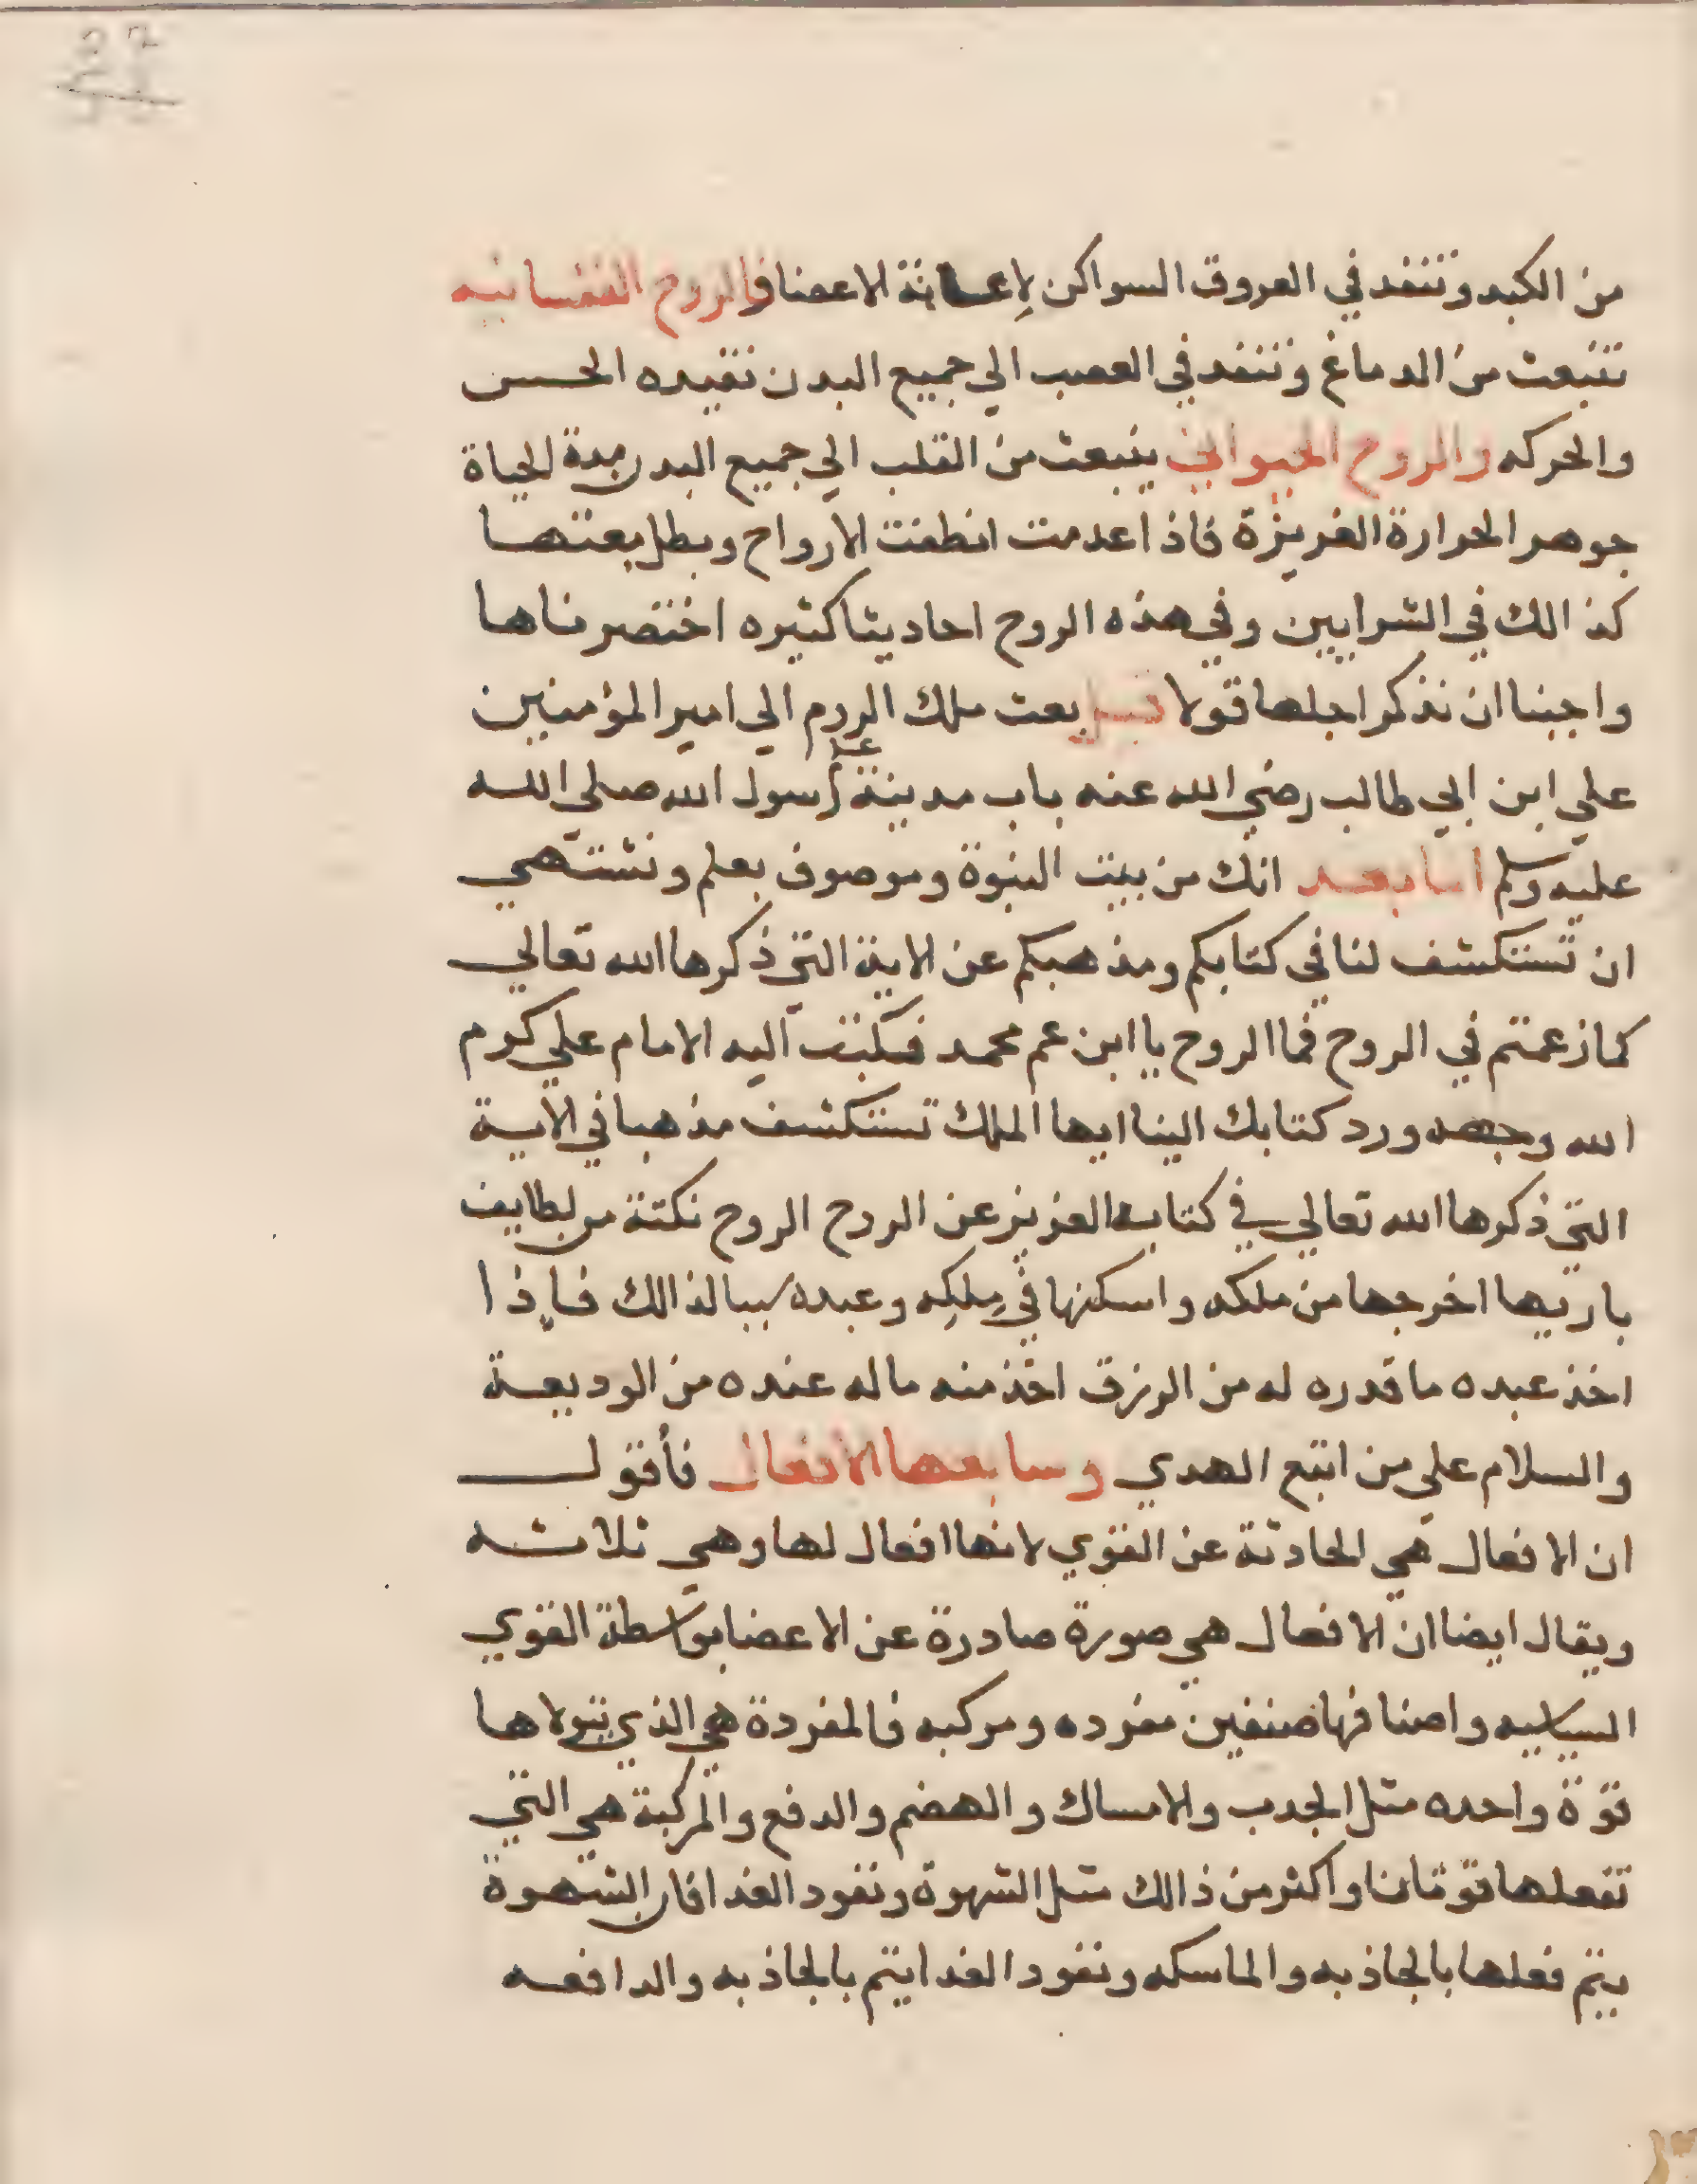 من الكبد وتنفد في العروق السواكن لإعانة الاعضا فالروح النفسانيه
تنبعث من الدماغ وتنفد في العصب الي جميع البدن تفيده الحس
والحركه والروح الحيواني ينبعث من القلب الي جميع البدن مدة الحياة
جوهر الحرارة الغريزة فاذا عدمت انطفت الارواح وبطل بعتها
كذالك في الشرايين وفي هذه الروح احاديثا كثيره اختصرناها
واجبنا ان نذكر اجلها قولا قيل بعث ملك الروم الي امير المؤمنين
علي ابن ابي طالب رضي الله عنه باب مدينة علم رسول الله صلي الله
عليه وسلم اما بعد انك من بيت النبوة وموصوف بعلم ونشتهي
ان تستكشف لنا في كتابكم ومذهبكم عن الاية التي ذكرها الله تعالي
كما زعمتم في الروح فما الروح يا ابن عم محمد فكتب اليه الامام علي كرم
الله وجهه ورد كتابك الينا ايها الملك تستكشف مذهبا في الآية
التي ذكرها الله تعالي في كتابه العزيز عن الروح الروح نكتة من لطايف
باريها اخرجها من ملكه واسكنها في مِلكِه وعبده سببا لذالك فإذا
اخذ عبده ما قدره له من الرزق اخذ منه ماله عنده من الوديعة
والسلام علي من اتبع الهدي وسابعها الأفعال فأقول
ان الافعال هي الحادثة عن القوي لانها افعال لها وهي ثلاثه
ويقال ايضا ان الافعال هي صورة صادرة عن الاعضا بواسطة القوي
السياسيه واصنافها صنفين مفرده ومركبه فالمفردة هي الذي يتولاها
قوة واحده مثل الجدب والامساك والهضم والدفع والمركبة هي التي
تفعلها قوتان او اكثر من ذالك مثل الشهوة ونفود الغدا فان الشهوة
يتم فعلها بالجاذبه والماسكه ونفود الغدا يتم بالجاذبه والدافعه